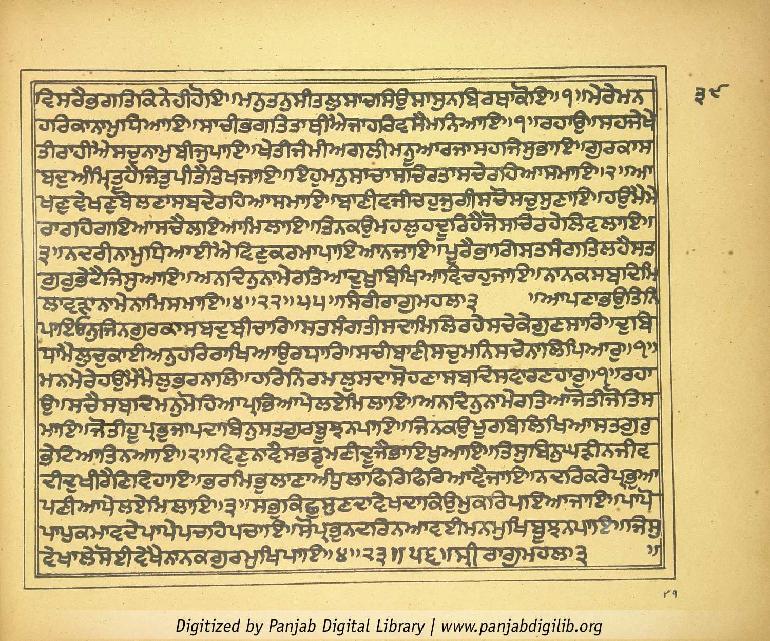 ਵਿਸਰੈਭਗਤਿਕਿਨੇਹੀਹੋਇ॥ਮਨੁਤਨੁਸੀਤਲੁਸਾਚਸਿਉਸਾਸੁਨਬਿਰਥਾਕੋਇ॥੧॥ਮੇਰੇਮਨ
ਹਰਿਕਾਨਾਮੁਧਿਆਇ॥ਸਾਚੀਭਗਤਿਤਾਥੀਐਜਾਹਰਿਵਸੈਮਨਿਆਇ॥੧॥ਰਹਾਉ॥ਸਹਜੇਖੇ
ਤੀਰਾਹੀਐਸਚੁਨਾਮੁਬੀਜੁਪਾਇ॥ਖੇਤੀਜੰਮੀਅਗਲੀਮਨੂਆਰਜਾਸਹਜਿਸੁਭਾਇ॥ਗੁਰਕਾਸ
ਬਦੁਅੰਮ੍ਰਿਤੁਹੈਜਿਤੁਪੀਤੈਤਿਖਜਾਇ॥ਇਹੁਮਨੁਸਾਚਾਸਚਿਰਤਾਸਚੇਰਹਿਆਸਮਾਇ॥੨॥ਆ
ਖਣੁਵੇਖਣੁਬੋਲਣਾਸਬਦੇਰਹਿਆਸਮਾਇ॥ਬਾਣੀਵਜੀਚਹੁਜੁਗੀਸਚੋਸਚੁਸੁਣਾਇ॥ਹਉਮੈਮੇ
ਰਾਰਹਿਗਇਆਸਚੈਲਇਆਮਿਲਾਇ॥ਤਿਨਕਉਮਹਲੁਹਦੂਰਿਹੈਜੋਸਚਿਰਹੇਲਿਵਲਾਇ॥
੩॥ਨਦਰੀਨਾਮੁਧਿਆਈਐਵਿਣੁਕਰਮਾਪਾਇਆਨਜਾਇ॥ਪੂਰੈਭਾਗਿਸਤਸੰਗਤਿਲਹੈਸਤ
ਗੁਰੁਭੇਟੈਜਿਸੁਆਇ॥ਅਨਦਿਨੁਨਾਮੇਰਤਿਆਦੁਖੁਬਿਖਿਆਵਿਚਹੁਜਾਇ॥ਨਾਨਕਸਬਦਿਮਿ
ਲਾਵੜਾਨਾਮੇਨਾਮਿਸਮਾਇ॥੪॥੨੨॥੫੫॥ਸਿਰੀਰਾਗੁਮਹਲਾ੩ ॥ਆਪਣਾਭਉਤਿਨਿ
ਪਾਇਓਨੁਜਿਨਗੁਰਕਾਸਬਦੁਬੀਚਾਰਿ॥ਸਤਸੰਗਤੀਸਦਾਮਿਲਿਰਹੇਸਚੇਕੇਗੁਣਸਾਰਿ॥ਦੁਬਿ
ਧਾਮੈਲੁਚੁਕਾਈਅਨੁਹਰਿਰਾਖਿਆਉਰਧਾਰਿ॥ਸਚੀਬਾਣੀਸਚੁਮਨਿਸਚੇਨਾਲਿਪਿਆਰੁ॥੧॥
ਮਨਮੇਰੇਹਉਮੈਮੈਲੁਭਰਨਾਲਿ॥ਹਰਿਨਿਰਮਲੁਸਦਾਸੋਹਣਾਸਬਦਿਸਵਾਰਣਹਾਰੁ॥੧॥ਰਹਾ
ਉ॥ਸਚੈਸਬਦਿਮਨੁਮੋਹਿਆਪ੍ਰਭਿਆਪੇਲਏਮਿਲਾਇ॥ਅਨਦਿਨੁਨਾਮੇਰਤਿਆਜੋਤੀਜੋਤਿਸ
ਮਾਇ॥ਜੋਤੀਹੂਪ੍ਰਭੁਜਾਪਦਾਬਿਨੁਸਤਗੁਰਬੂਝਨਪਾਇ॥ਜਿਨਕਉਪੂਰਬਿਲਿਖਿਆਸਤਗੁਰੁ
ਭੇਟਿਆਤਿਨਆਇ॥੨॥ਵਿਣੁਨਾਵੈਸਭਡੁਮਣੀਦੂਜੈਭਾਇਖੁਆਇ॥ਤਿਸੁਬਿਨੁਘੜੀਨਜੀਵ
ਦੀਦੁਖੀਰੈਣਿਵਿਹਾਇ॥ਭਰਮਿਭੁਲਾਣਾਅੰਧੁਲਾਫਿਰਿਫਿਰਿਆਵੈਜਾਇ॥ਨਦਰਿਕਰੇਪ੍ਰਭੁਆ
ਪਣੀਆਪੇਲਏਮਿਲਾਇ॥੩॥ਸਭੁਕਿਛੁਸੁਣਦਾਵੇਖਦਾਕਿਉਮੁਕਰਿਪਇਆਜਾਇ॥ਪਾਪੋ
ਪਾਪੁਕਮਾਵਦੇਪਾਪੇਪਚਹਿਪਚਾਇ॥ਸੋਪ੍ਰਭੁਨਦਰਿਨਆਵਈਮਨਮੁਖਿਬੂਝਨਪਾਇ॥ਜਿਸੁ
ਵੇਖਾਲੇਸੋਈਵੇਖੈਨਾਨਕਗੁਰਮੁਖਿਪਾਇ॥੪॥੨੩॥੫੬॥ਸ੍ਰੀਰਾਗੁਮਹਲਾ੩ ॥
Digitized by Panjab Digital Library | www.panjabdigilib.org